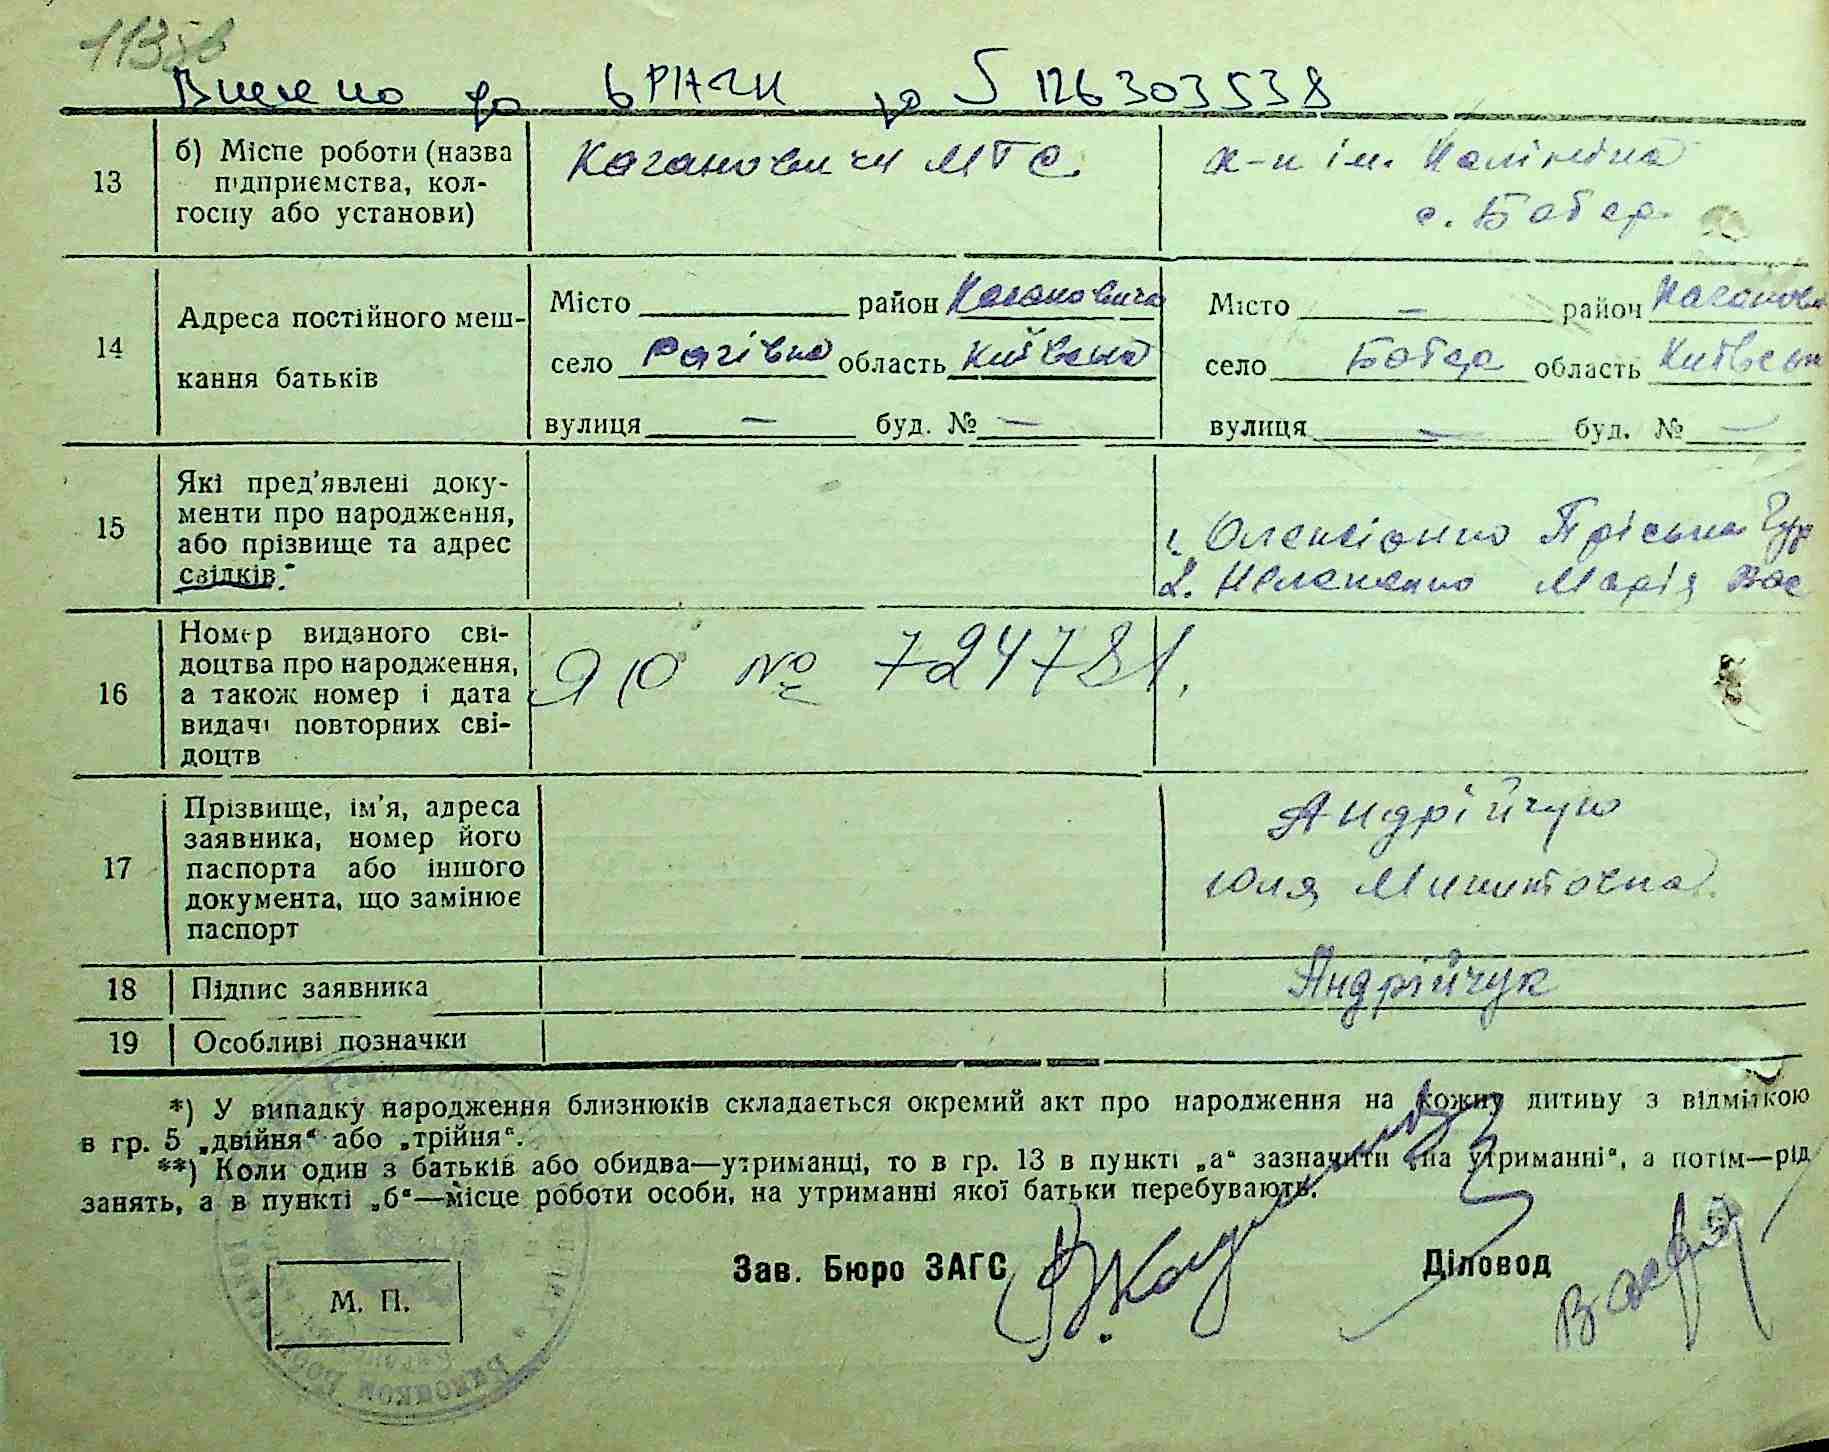 1138
Внесено до ДРАЦС за № 126303538
13
б) Місце роботи (назва
підприємства, кол-
госпу або установи)
Каганович МТС
к-п ім. Калініна
с. Бобер
14
Адреса постійного меш-
кання батьків
Місто район Кагановича
село Рагівка область Київська
вулиця — буд. № —
Місто — район Каганов
село Бобер область Київськ
вулиця — буд. № —
15
Які пред'явлені доку-
менти про народження,
або прізвище та адрес
свідків.
1. Олексієнко Пріська
2. Марія Вас
16
Номер виданого сві-
доцтва про народження,
а також номер і дата
видачі повторних сві-
доцтв
ЯЮ № 724781.
17
Прізвище, ім'я, адреса
заявника, номер його
паспорта або іншого
документа, що замінює
паспорт
Андрійчук
Юля Микитосна
18
Підпис заявника
Андрійчук
19
Особливі позначки
*) У випадку народження близнюків складається окремий акт про народження на кожну дитину з відміткою
в гр. 5 „двійня“ або „трійня“.
**) Коли один з батьків або обидва—утриманці, то в гр. 13 в пункті „а“ зазначити „на утриманні“, а потім—рід
занять, а в пункті „б“—місце роботи особи, на утриманні якої батьки перебувають.
Зав. Бюро ЗАГС
Діловод
М. П.